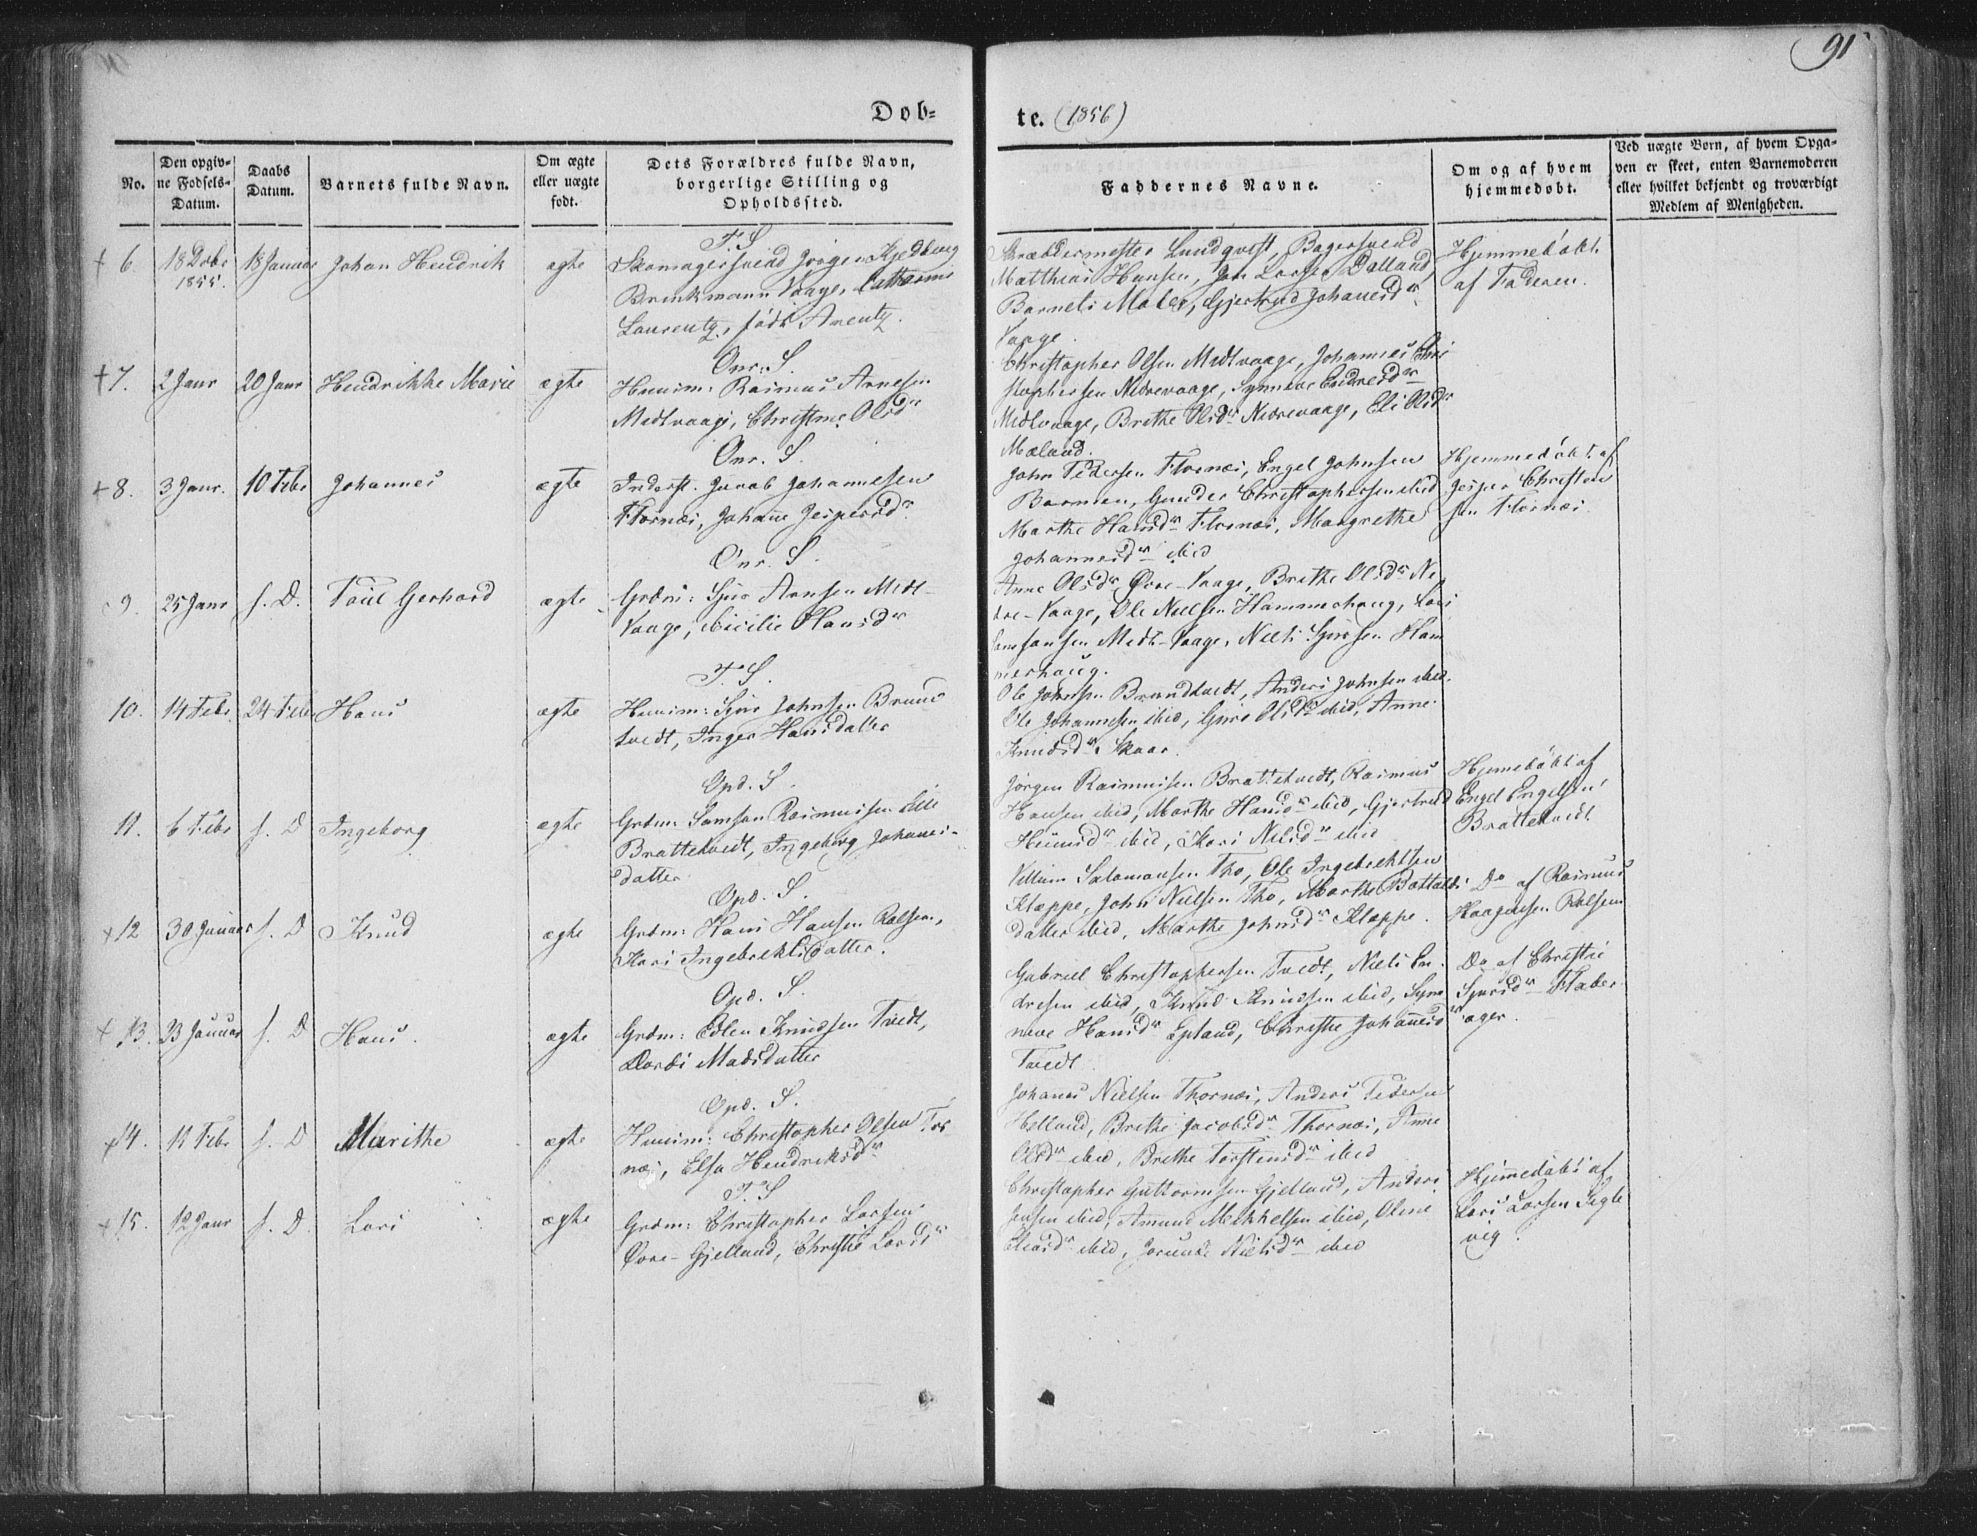 91
Dob-
te. (1856)
No.
Den opgiv-
ne Fødsels-
Datum.
Daabs
Datum.
Barnets fulde Navn.
Om ægte
eller uægte
født.
Dets Forældres fulde Navn,
borgerlige Stilling og
Opholdssted.
Faddernes Navne.
Om og af hvem
hjemmedøbt.
Ved uægte Børn, af hvem Opga-
ven er skeet, enten Barnemoderen
eller hvilket bekjendt og troværdigt
Medlem af Menigheden.
+ 6. 18 Decbr 1855. 18 Januar Johan Hendrik ægte
T. S
Skomagersvend Jörgen Kjedberg
Brinkmann Vaage, Cathrine
Laurentz, födt Arentz.
Skræddermester Lundqvist, Bagersvend
Matthias Hansen, Jon Larsen Dalland,
Barnets Moder, Gjertrud Johanesdr
Vaage.
Hjemmedöbt
af Faderen.
+ 7. 2 Janr 20 Janr Hendrikke Marie ægte
Onr. S.
Huusm: Rasmus Arnesen
Midtvaage, Christine Olsdr
Christopher Olsen Midtvaage, Johannes Chri
stophersen Nedrevaage, Synneve Endresdr
Midtvaage, Brithe Olsdr Nedrevaage, Eli Olsdr
Mæland.
+ 8. 3 Janr. 10 Febr Johannes ægte
Onr. S.
Inderst. Jacob Johannesen
Flornæs, Johane Jespersdr
John Pedersen Flornæs, Engel Johnsen
Barmen, Gunder Christophersen ibid
Marthe Hansdr Flornæs, Margrethe
Johannesdr ibid
Hjemmedöbt af
Jesper Christen
sen Flornæs.
9. 25 Janr s. D. Poul Gerhard ægte
Onr. S.
Grdm: Sjur Arnsen Midt-
Vaage, Cicilie Hansdr
Anne Olsdr Övre-Vaage, Brithe Olsdr Ne
dre-Vaage, Ole Nielsen Hammerhaug, Lars
Hansen Midt-Vaage, Niels Sjursen Ham
merhaug.
10. 14 Febr. 24 Febr Hans ægte
T. S.
Huusm: Sjur Johnsen Brund
tvedt, Inger Hansdatter
Ole Johnsen Brundtvedt, Anders Johnsen ibid.
Ole Johannesen ibid, Guro Olsdr ibid, Anne
Knudsdr Skaar.
11. 6 Febr s. D Ingeborg ægte
Opd. S.
Grdm: Samson Rasmussen Lille
Brattetvedt, Ingeborg Johanes-
datter
Jörgen Rasmussen Brattetvedt, Rasmus
Hansen ibid, Marthe Hansdr ibid, Gjertrud
ibid, Kari Nilsdr ibid
Hjemmedöbt af
Engel Engelsen
Brattetvedt
+ 12 30 Januar s. D Knud ægte
Opd. S.
Grdm: Hans Hansen Rolsen,
Kari Ingebrektsdatter.
Villum Salamonsen Tho, Ole Ingebrektsen
Klæppe, John Nielsen Tho, Marthe
datter ibid, Marthe Johnsdr Klæppe.
Do af Rasmus
Haagensen Rolsen
+ 13. 23 Januar s. D Hans. ægte
Opd. S.
Grdm: Edlen Knudsen Tvedt,
Dordei Madsdatter
Gabriel Christophersen Tvedt, Niels En
dresen ibid, Knud Knudsen ibid, Syn
neve Hansdr Epland, Christie Johanesdr
Tvedt.
Do af Christie
Sjursdr Flaber
ager.
+ 14. 11 Febr s. D Marithe ægte
Opd. S.
Huusm: Christopher Olsen Tor
næs, Elsa Hendriksdr
Johanes Nielsen Thornæs, Anders Pedersen
Helland, Brithe Jacobsdr Thornæs, Anne
Olsdr ibid, Brithe Torstensdr ibid
+ 15. 12 Janr s. D. Lars ægte
T. S
Grdm: Christopher Larsen
Övre-Gjelland, Christie Larsdr
Christopher Guttormsen Gjelland, Anders
Jensen ibid, Amund Mikkelsen ibid, Oline
ibid, Jorunde Nielsdr ibid
Hjemmedöbt af
Lars Larsen Tegle
vig.